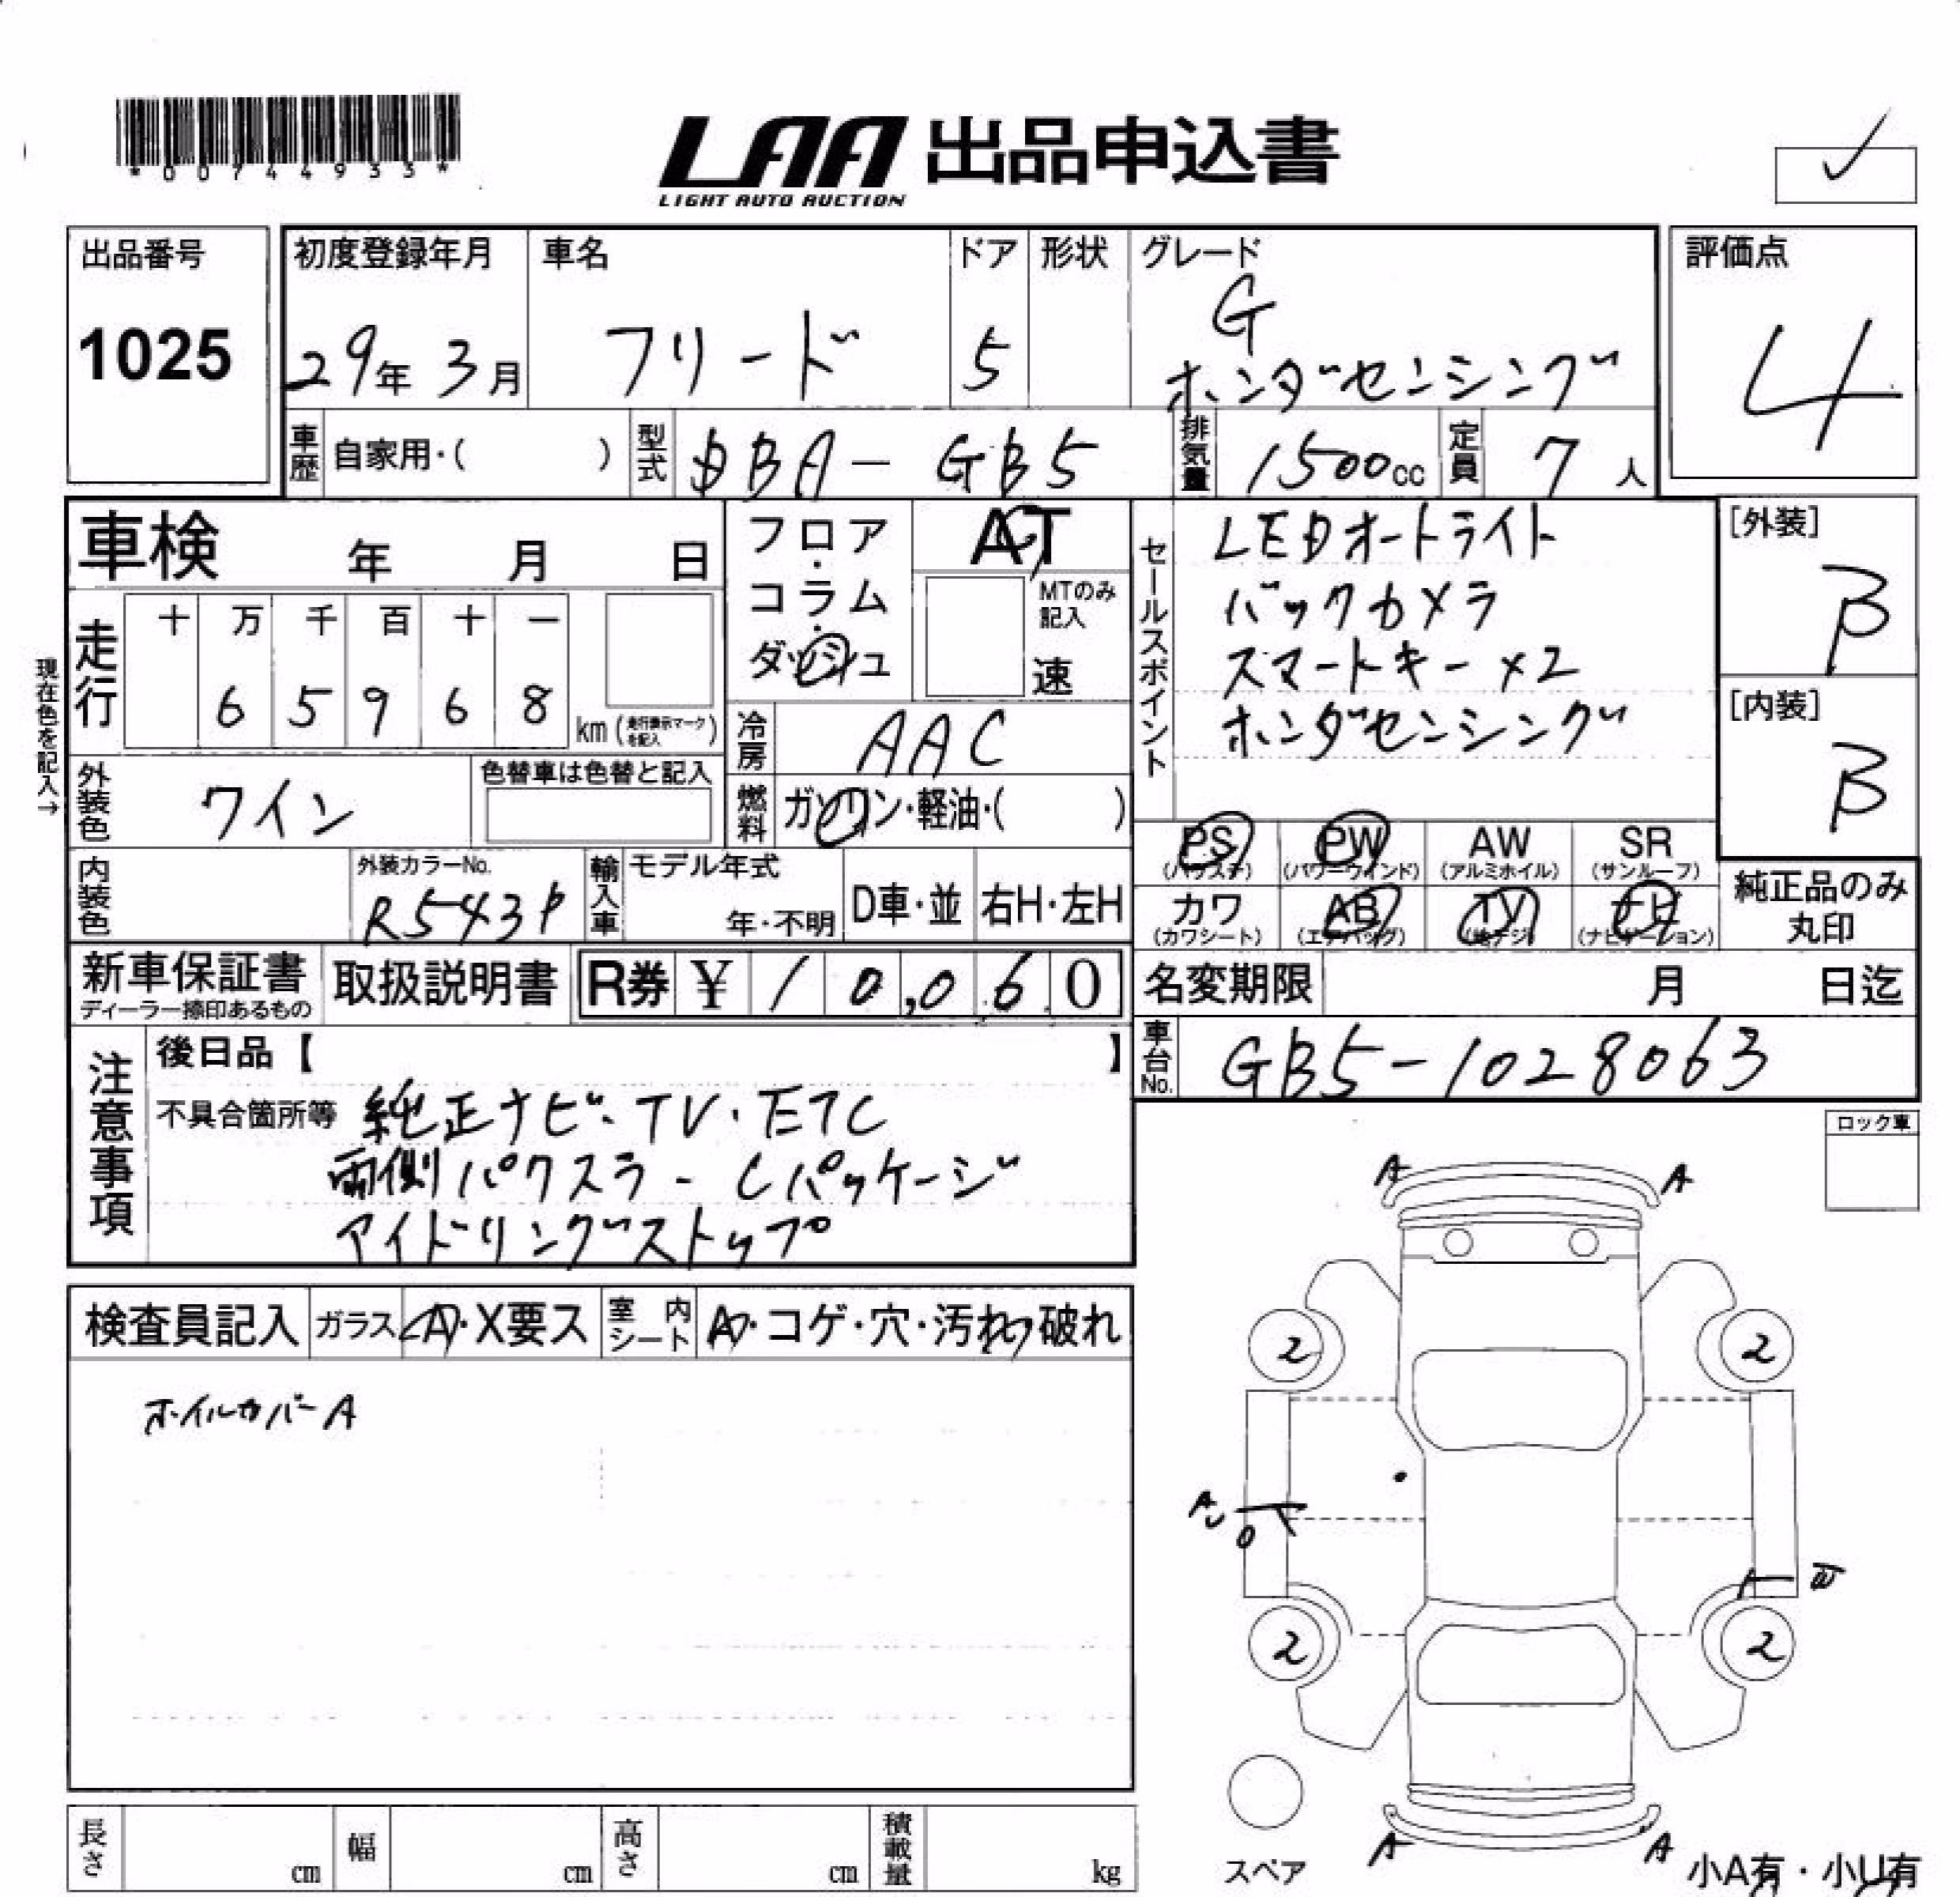 *00744933*
LAA 出品申込書
LIGHT AUTO AUCTION
出品番号
1025
初度登録年月
29年 3月
車名
フリード
ドア
5
形状
グレード
G
ホンダセンシング
評価点
4
車歴 自家用・( )
型式 DBA-GB5
排気量 1500cc
定員 7人
車検 年 月 日
フロア・コラム・ダッシュ
AT
MTのみ記入
速
セールスポイント
LEDオートライト
バックカメラ
スマートキー×2
ホンダセンシング
[外装]
B
[内装]
B
現在色を記入→
走行
十 万 千 百 十 一
6 5 9 6 8
km (走行表示マークを記入)
冷房 AAC
外装色 ワイン
色替車は色替と記入
燃料 ガソリン・軽油・( )
PS (パワステ)
PW (パワーウインド)
AW (アルミホイル)
SR (サンルーフ)
カワ (カワシート)
AB (エアバッグ)
TV (地デジ)
ナビ (ナビゲーション)
純正品のみ丸印
内装色
外装カラーNo.
R543P
輸入車
モデル年式
年・不明
D車・並
右H・左H
新車保証書
ディーラー捺印あるもの
取扱説明書
R券 ¥10,060
名変期限 月 日迄
車台No. GB5-1028063
注意事項
後日品【 】
不具合箇所等 純正ナビ・TV・ETC
両側パワスラ - Cパッケージ
アイドリングストップ
ロック車
検査員記入
ガラス A・X要ス
室内シート A・コゲ・穴・汚れ・破れ
ホイルカバーA
A A
2 2
A
2 2
A A
スペア
小A有・小U有
長さ cm
幅 cm
高さ cm
積載量 kg